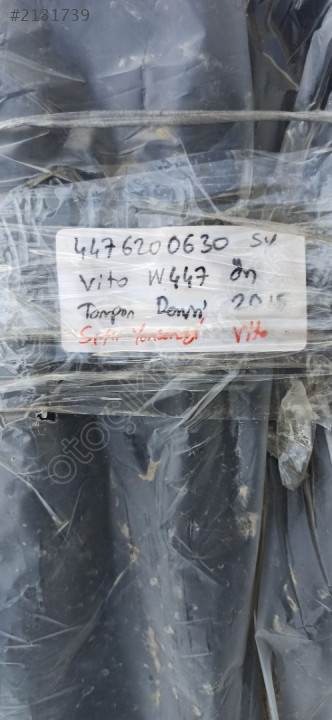 #2131739
4476200630 SV
Vito W447 ön
Tampon Demiri 2015
Sıfır Yansanayi Vito
otogi